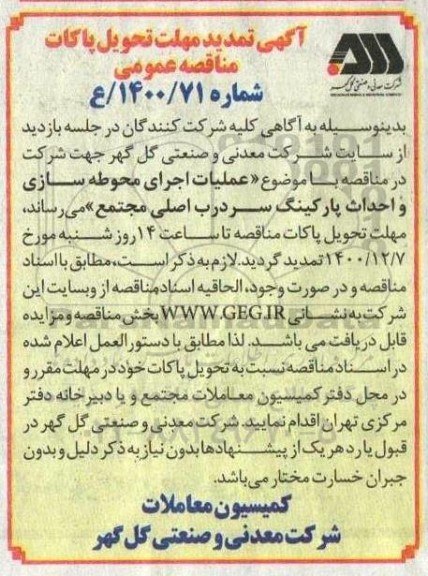 آگهی تمدید مهلت تحویل پاکات
مناقصه عمومی
شماره ۱۴۰۰/۷۱/ع
شرکت معدنی و صنعتی گل گهر
بدینوسیله به آگاهی کلیه شرکت کنندگان در جلسه بازدید
از سایت شرکت معدنی و صنعتی گل گهر جهت شرکت
در مناقصه با موضوع «عملیات اجرای محوطه سازی
و احداث پارکینگ سردرب اصلی مجتمع» می‌رساند،
مهلت تحویل پاکات مناقصه تا ساعت ۱۴ روز شنبه مورخ
۱۴۰۰/۱۲/۷ تمدید گردید. لازم به ذکر است، مطابق با اسناد
مناقصه و در صورت وجود، الحاقیه اسناد مناقصه از وبسایت این
شرکت به نشانی WWW.GEG.IR بخش مناقصه و مزایده
قابل دریافت می باشد. لذا مطابق با دستورالعمل اعلام شده
در اسناد مناقصه نسبت به تحویل پاکات خود در مهلت مقرر و
در محل دفتر کمیسیون معاملات مجتمع و یا دبیرخانه دفتر
مرکزی تهران اقدام نمایید. شرکت معدنی و صنعتی گل گهر در
قبول یا رد هر یک از پیشنهادها بدون نیاز به ذکر دلیل و بدون
جبران خسارت مختار می‌باشد.
کمیسیون معاملات
شرکت معدنی و صنعتی گل گهر